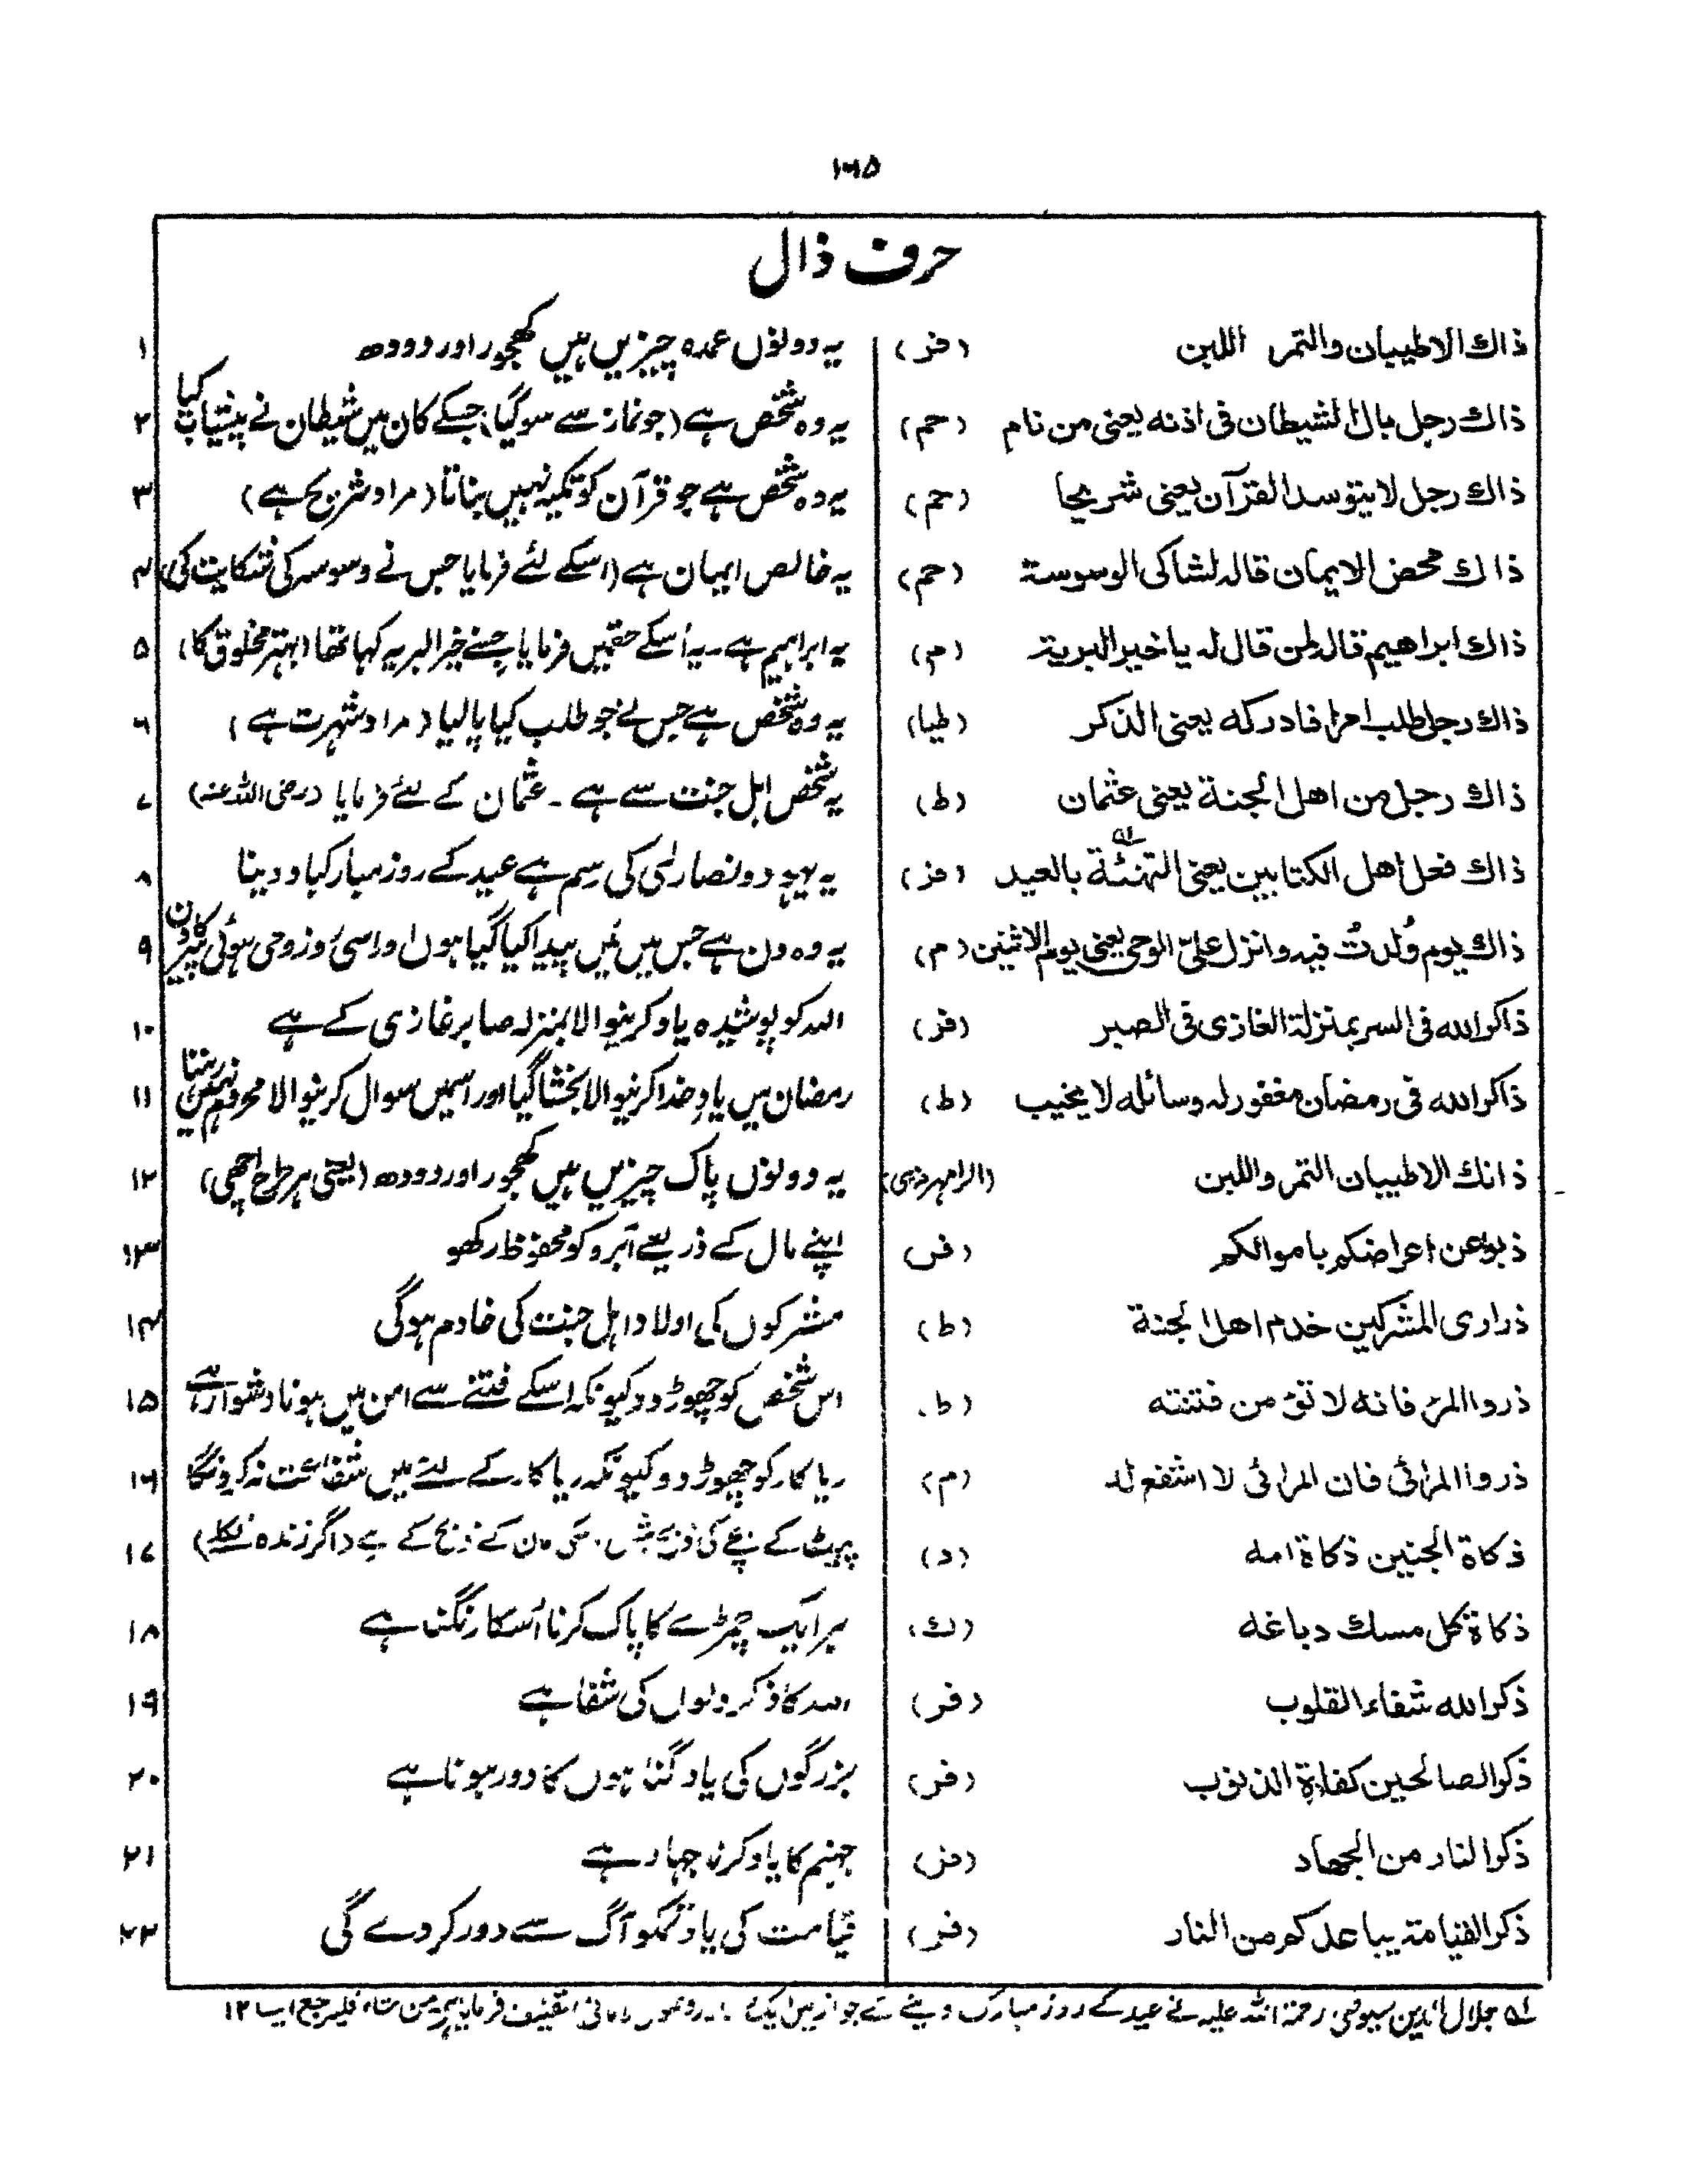 ١٦٥
حرف ذال
ذاك الاطيبان والتمر اللبن (فر) یہ دونوں عمدہ چیزیں ہیں کھجور اور دودھ ١
ذاك رجل بال الشيطان فى اذنه يعنى من نام (حم) یہ وہ شخص ہے (جو نماز سے سو گیا) جسکے کان میں شیطان نے پیشاب کیا ٢
ذاك رجل لا يتوسد القرآن يعنى شريحا (حم) یہ وہ شخص ہے جو قرآن کو تکیہ نہیں بناتا (مراد شریح ہے) ٣
ذاك محض الايمان قاله لشاكى الوسوسة (حم) یہ خالص ایمان ہے (اسکے لئے فرمایا جس نے وسوسہ کی شکایت کی) ٤
ذاك ابراهيم قاله لمن قال له يا خير البرية (م) یہ ابراہیم ہے۔ یہ اُسکے حقمیں فرمایا جسنے خیر البریہ کہا تھا (بہتر مخلوق کا) ٥
ذاك رجل طلب امرا فادركه يعنى الذكر (طيا) یہ وہ شخص ہے جس نے جو طلب کیا پا لیا (مراد شہرت ہے) ٦
ذاك رجل من اهل الجنة يعنى عثمان (ط) یہ شخص اہل جنت سے ہے ۔ عثمان کے لئے فرمایا (رضی اللہ عنہ) ٧
ذاك فعل اهل الكتابين يعنى التهنئة ؎١ بالعيد (فر) یہ یہود و نصاریٰ کی رسم ہے عید کے روز مبارکباد دینا ٨
ذاك يوم وُلدتُ فيه وانزل علىّ الوحى يعنى يوم الاثنين (م) یہ وہ دن ہے جس میں مَیں پیدا کیا گیا ہوں اور اسی روز وحی ہوئی پیر کا دن ٩
ذاكر الله فى السر بمنزلة الغازى فى الصبر (فر) اللہ کو پوشیدہ یاد کرنیوالا بمنزلہ صابر غازی کے ہے ١٠
ذاكر الله فى رمضان مغفور له وسائله لا يخيب (ط) رمضان میں یادِ خدا کرنیوالا بخشا گیا اور اسمیں سوال کرنیوالا محروم نہیں رہتا ١١
ذانك الاطيبان التمر واللبن (الرامهرمزى) یہ دونوں پاک چیزیں ہیں کھجور اور دودھ (یعنی ہر طرح اچھی) ١٢
ذبوا عن اعراضكم باموالكم (فر) اپنے مال کے ذریعے آبرو کو محفوظ رکھو ١٣
ذرارى المشركين خدم اهل الجنة (ط) مشرکوں کی اولاد اہل جنت کی خادم ہوگی ١٤
ذروا المرء فانه لا تؤ من فتنته (ط) اس شخص کو چھوڑ دو کیونکہ اسکے فتنے سے امن میں ہونا دشوار ہے ١٥
ذروا المرائى فان المرائى لا اشفع له (م) ریا کار کو چھوڑ دو کیونکہ ریا کار کے لئے میں شفاعت نہ کرونگا ١٦
ذكاة الجنين ذكاة امه (د) پیٹ کے بچے کی ذبح کے ہے (اگر زندہ نکلے) ١٧
ذكاة كل مسك دباغه (ك) ہر ایک چمڑے کا پاک کرنا اُسکا رنگنا ہے ١٨
ذكر الله شفاء القلوب (فر) اللہ کا ذکر دلوں کی شفا ہے ١٩
ذكر الصالحين كفارة الذنوب (فر) بزرگوں کی یاد گناہوں کا دور ہونا ہے ٢٠
ذكر النار من الجهاد (فر) جہنم کا یاد کرنا جہاد ہے ٢١
ذكر القيامة يباعدكم من النار (فر) قیامت کی یاد تمکو آگ سے دور کر دے گی ٢٢
؎١ جلال الدین سیوطی رحمۃ اللہ علیہ نے عید کے روز مبارک دینے کے جواز میں ایک فرمایا من شاء فلیرجع ایسا ١٢